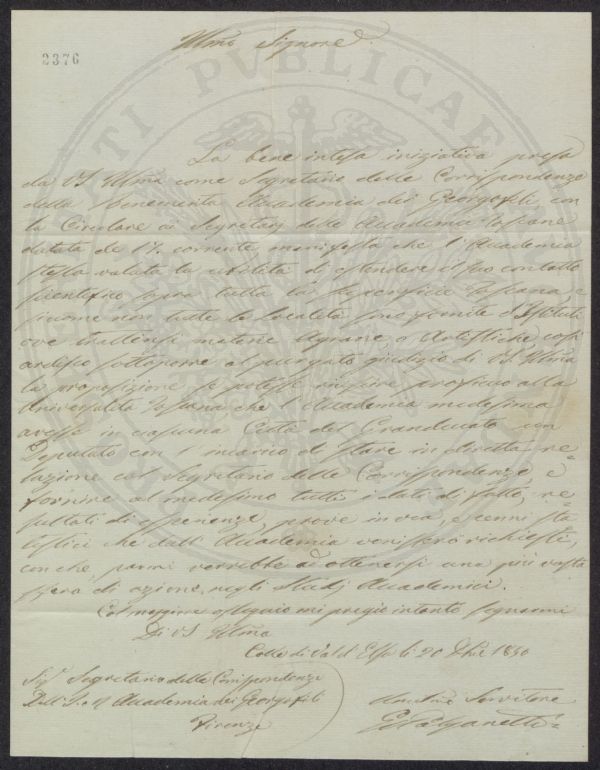 Illmo Signore
2376
La bene intesa iniziativa presa
da VS Illma come Segretario delle Corrispondenze
della benemerita Accademia dei Georgofili, con
la Circolare ai Segretarj delle Accademie Toscane
datata de 17. corrente, manifesta che l'Accademia
stessa valuta la utilità di estendere il suo contatto
scientifico sopra tutta la superficie Toscana, e
siccome non tutte le Località sono fornite d'Istituti
ove trattensi materie Agrarie, o Artistiche, così
ardisco sottoporre al purgato giudizio di VS Illma
la proposizione se potesse proficuo alla
Universalità Toscana che l'Accademia medesima
avesse in ciascuna Città del Granducato un
Deputato con l'incarico di stare in diretta re=
lazione col Segretario delle Corrispondenze, e
fornire al medesimo tutti i dati di fatto, re=
sultati di esperienze, prove in uso, e cenni sta=
tistici che dall'Accademia venissero richiesti,
con che, parmi verrebbe ad ottenersi una più vasta
sfera di azione negli studj Accademici.
Col massimo ossequio mi pregio intanto segnarmi
Di VS Illma
Colle di Val d'Elsa li 20 1850
Sig. Segretario delle Corrispondenze
Dell' I. e R. Accademia dei Georgofili
Firenze
Servitore